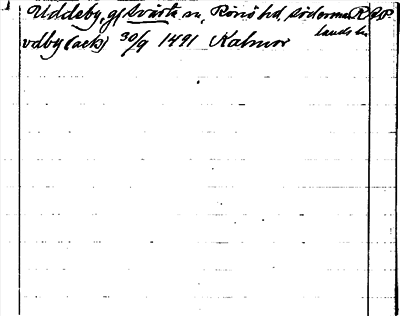 Uddeby, gf Svärta sn, Rönö hd, Söderman R Ap
lands län
vdby (ack) 30/9 1491 Kalmar